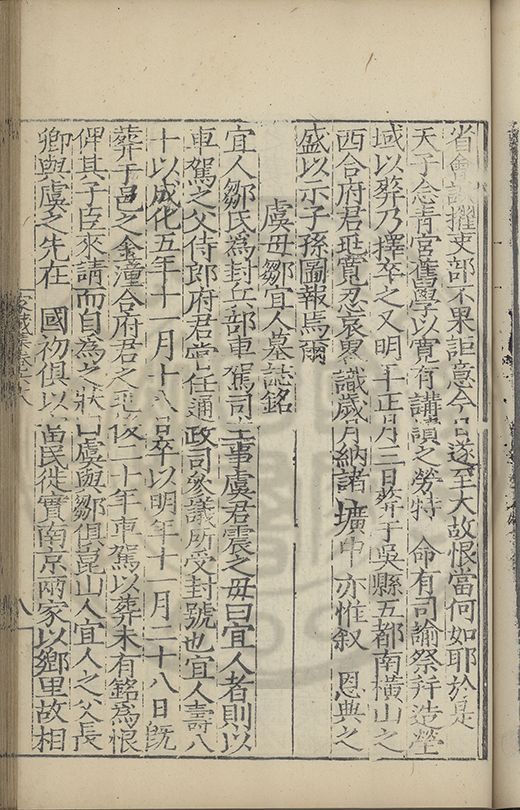 省會試擢吏部不果詎意今日遂至大故恨當何如耶於是
天子念青宮舊學以寬有講讀之勞特　命有司諭祭并造塋
域以葬乃擇卒之又明年正月三日葬于吳縣五都南橫山之
西合府君壙寬忍哀畧識歲月納諸壙中亦惟叙　恩典之
盛以示子孫圖報焉爾
虞母鄒宜人墓誌銘
宜人鄒氏為封兵部車駕司主事虞君震之母曰宜人者則以
車駕之父侍郎府君嘗任通政司叅議所受封號也宜人壽八
十以成化五年十一月十八日卒以明年十一月二十八日旣
葬于邑之金潼合府君之後二十年車駕以葬未有銘為恨
俾其子臣來請而自為之狀曰虞與鄒俱崑山人宜人之父長
卿與虞之先在　國初俱以富民徙實南京兩家以鄉里故相
八